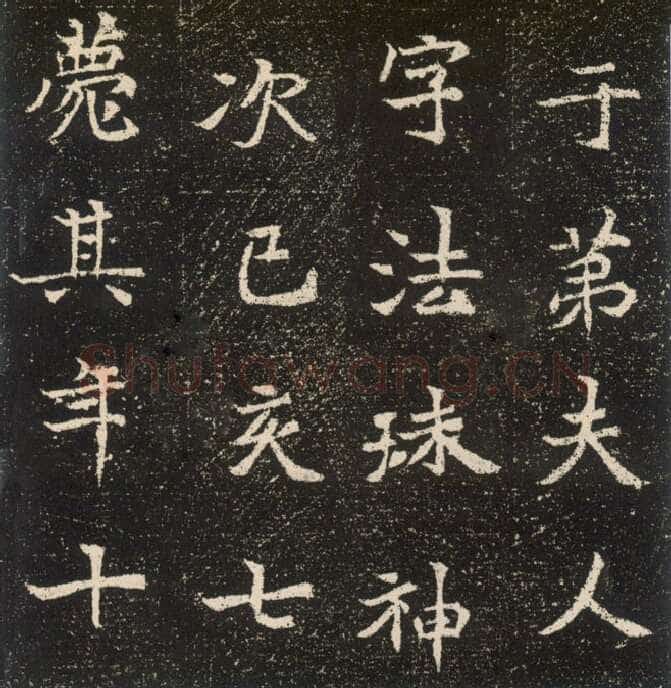 于弟夫人
字法珠神
次己亥七
薨其年十
Shufawang.CN